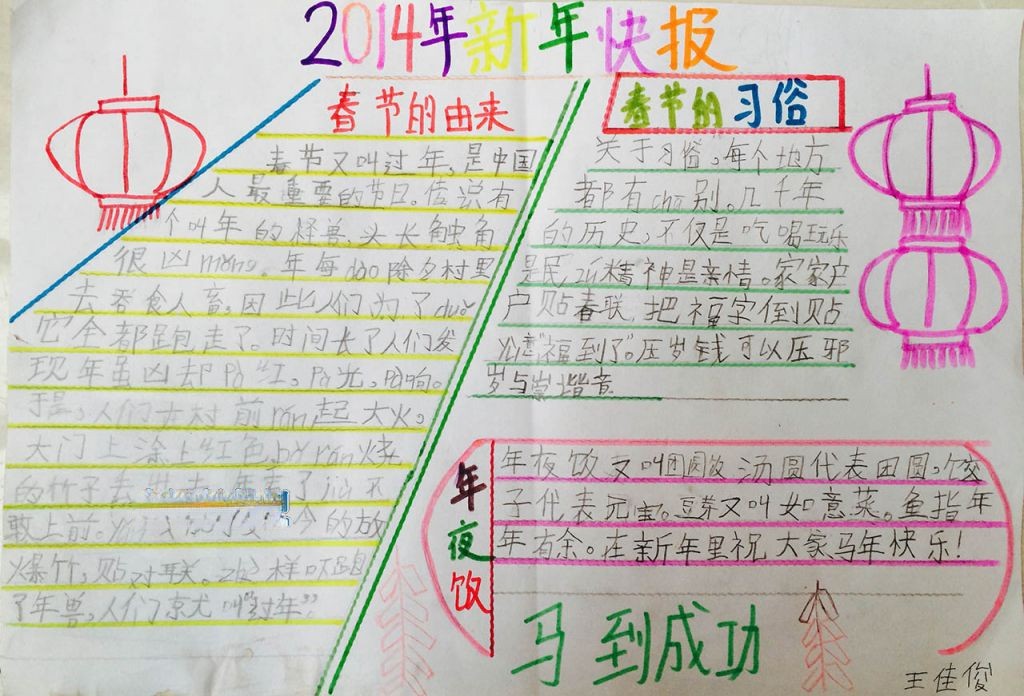 2014年新年快报
春节的由来
春节又叫过年,是中国
人最重要的节日。传说有
个叫年的怪兽,头长触角
很凶měng。年每dào除夕村里
去吞食人畜,因此人们为了duǒ
它全都跑走了。时间长了人们发
现年虽凶却pà红,pà光,pà响。
于是,人们在村前rán起大火,
大门上涂上红色,bǎ rán烧
的竹子去
敢上前。今的放
爆竹,贴对联。这样吓跑
了年兽,人们就叫“过年”。
春节的习俗
关于习俗,每个地方
都有chā别。几千年
的历史,不仅是吃喝玩乐
是民族精神是亲情。家家户
户贴春联,把福字倒贴
注意“福到了”。压岁钱可以压邪
岁与祟谐音
年夜饭
年夜饭又叫团圆饭 汤圆代表田圆,饺
子代表元宝。豆芽又叫如意菜。鱼指年
年有余。在新年里祝大家马年快乐!
马到成功
王佳俊